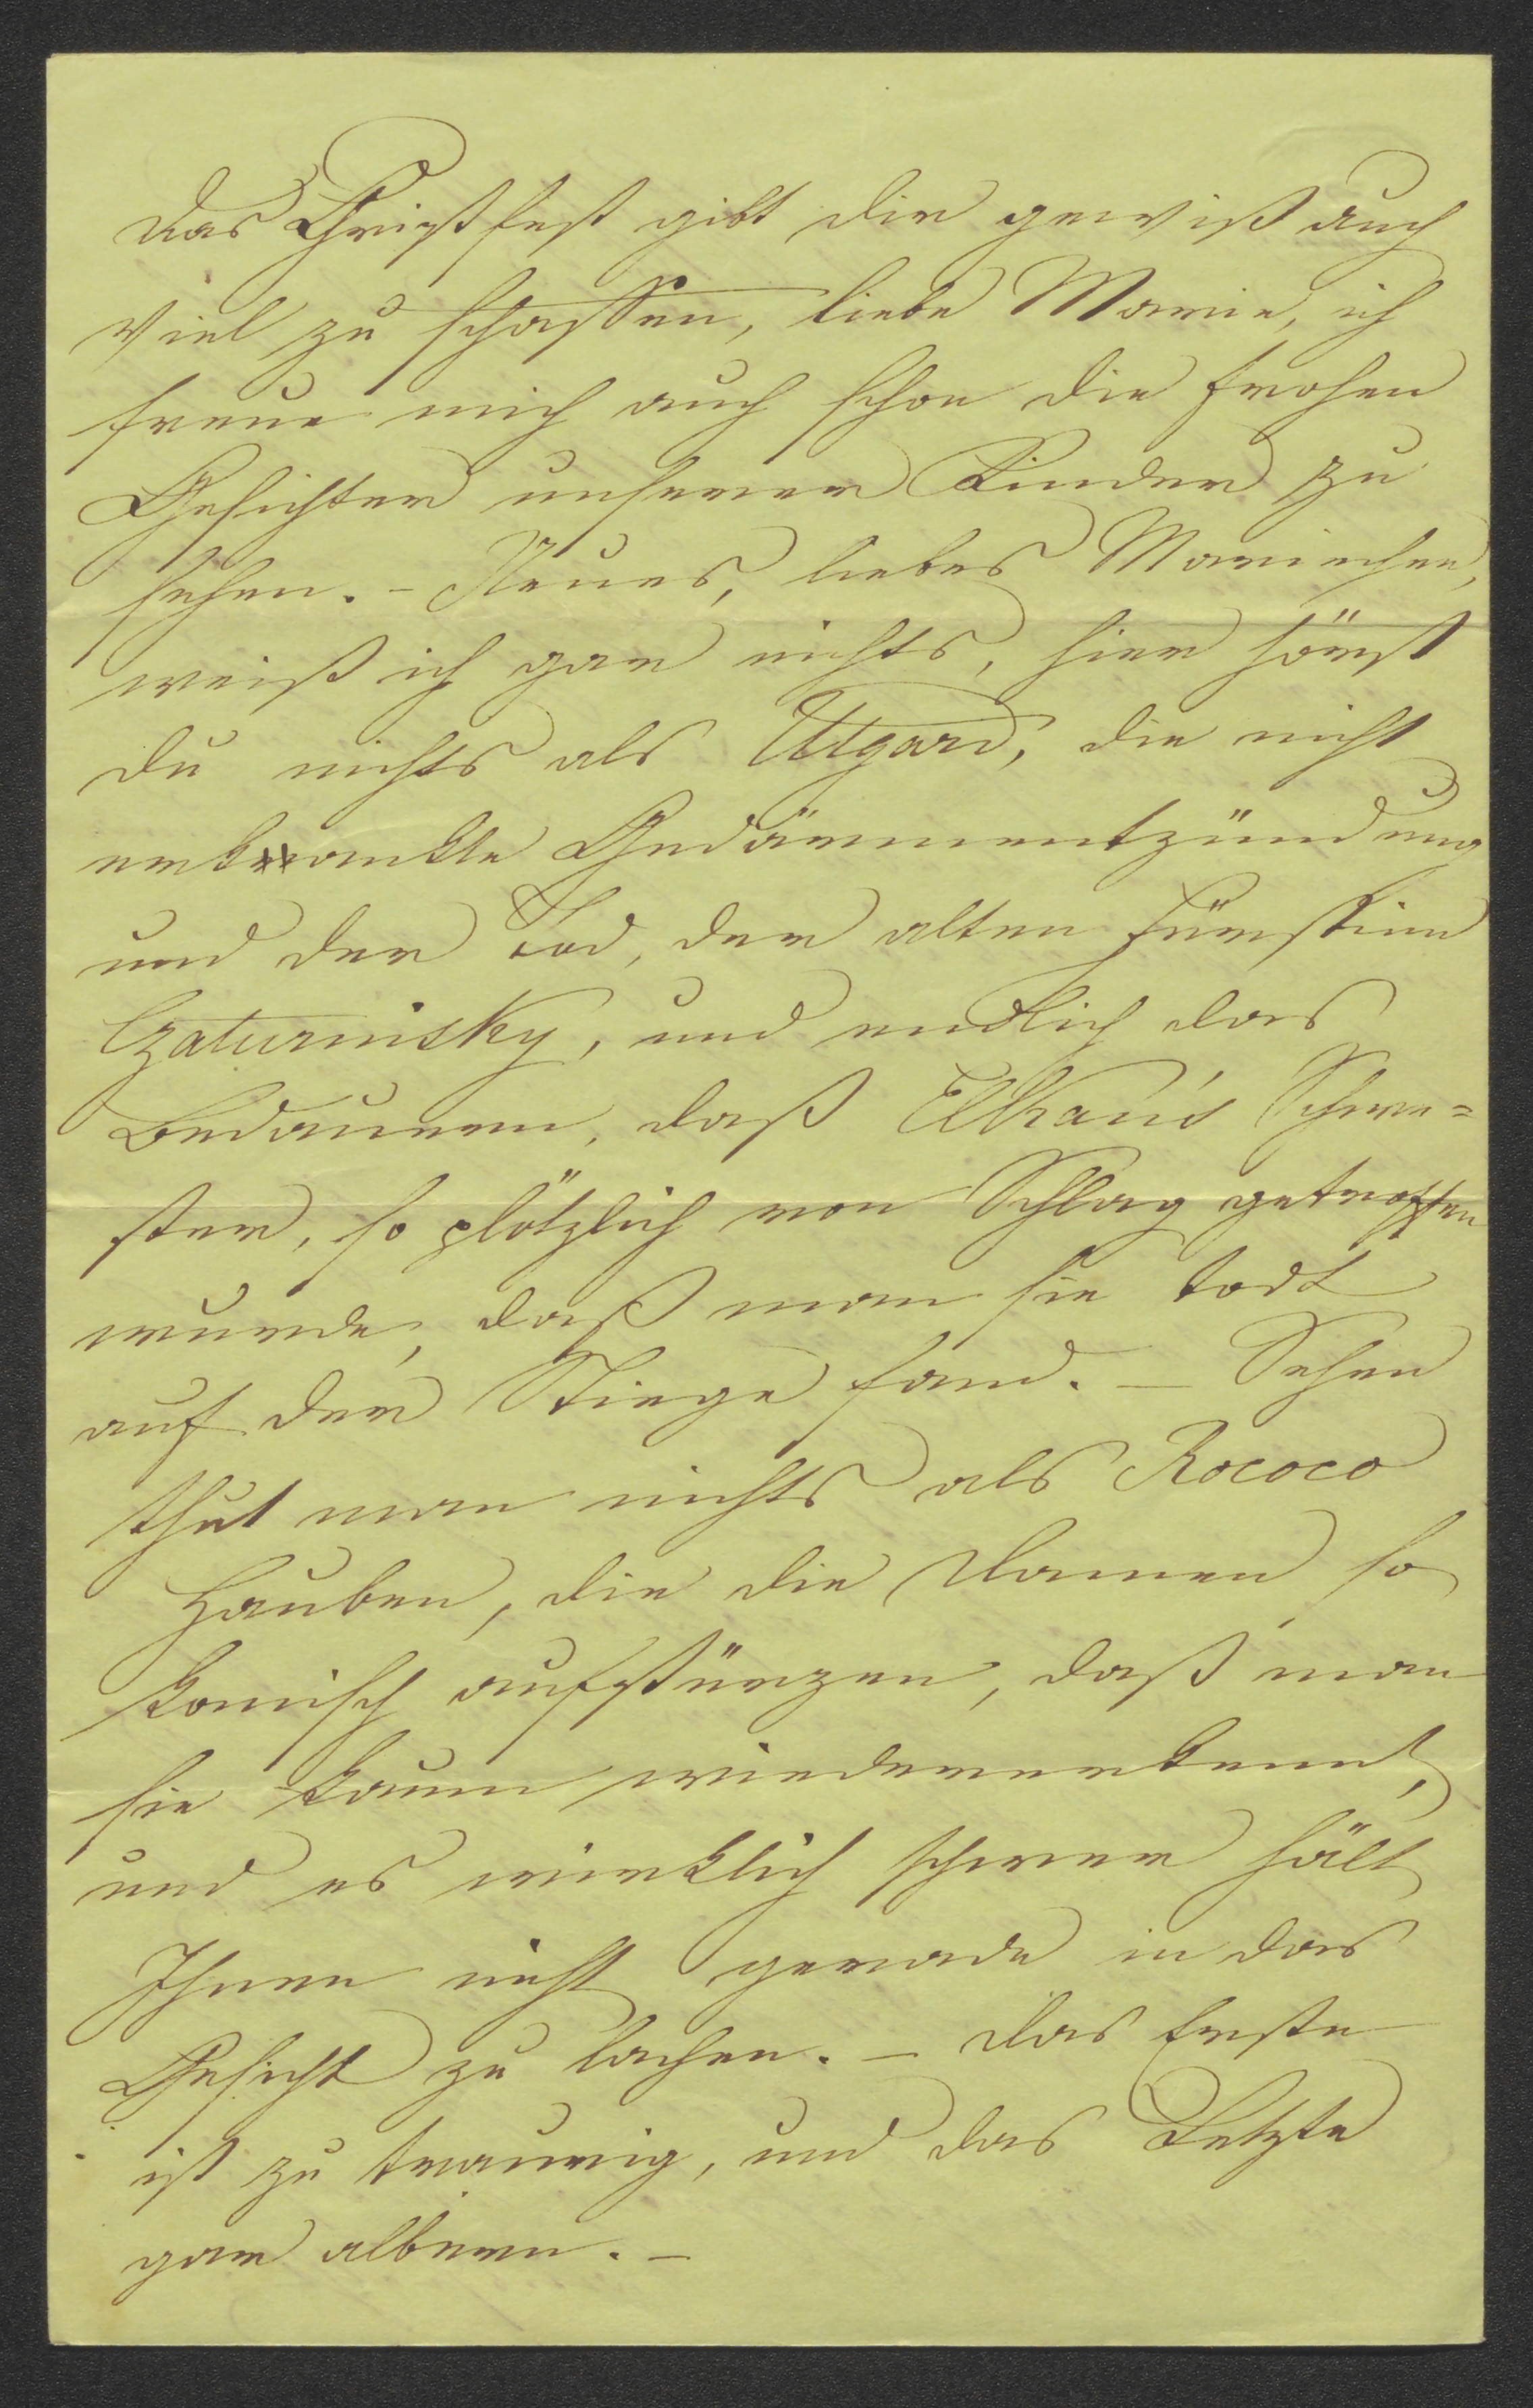 Das Christfest gibt dir gewiß auch
viel zu schaffen, liebe Marie, ich
freue mich auch schon die frohen
Gesichter unserer Kinder zu
sehen. – Neues, liebes Mariechen,
weiß ich gar nichts, hier hörst
du nichts als Utgard, die nicht
erkrankte Gedärmentzündung
und der Tod, der alten Fürstinn
Czaturinsky, und endlich das
Bedauern, daß Elkan's Schwe=
ster, so plötzlich von Schlag getroffen
wurde, daß man sie todt
auf der Stiege fand. – Sehen
thut man nichts als Rococo
Hauben, die die Damen so
komisch aufstürzen, daß man
sie kaum wiedererkennt,
und es wirklich schwer hält
Ihnen nicht gerade in das
Gesicht zu lachen. – Das Erste
ist zu traurig, und das Letzte
gar albern. –